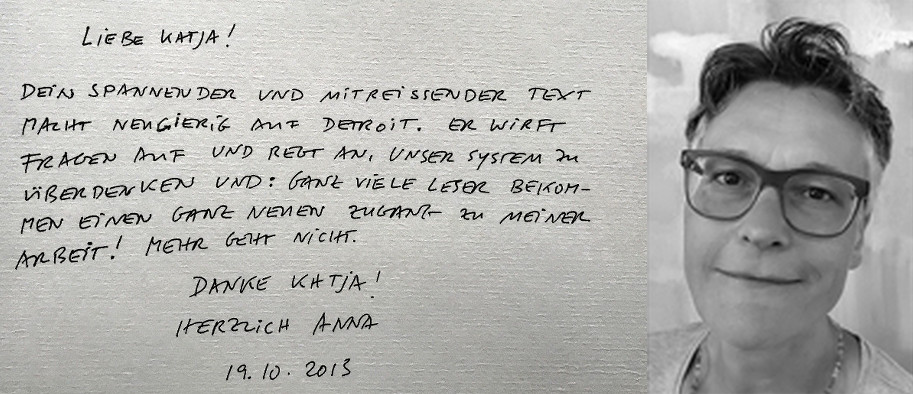 LIEBE KATJA!
DEIN SPANNENDER UND MITREISSENDER TEXT
MACHT NEUGIERIG AUF DETROIT. ER WIRFT
FRAGEN AUF UND REGT AN, UNSER SYSTEM ZU
ÜBERDENKEN UND: GANZ VIELE LESER BEKOM-
MEN EINEN GANZ NEUEN ZUGANG ZU MEINER
ARBEIT! MEHR GEHT NICHT.
DANKE KATJA!
HERZLICH ANNA
19.10.2013